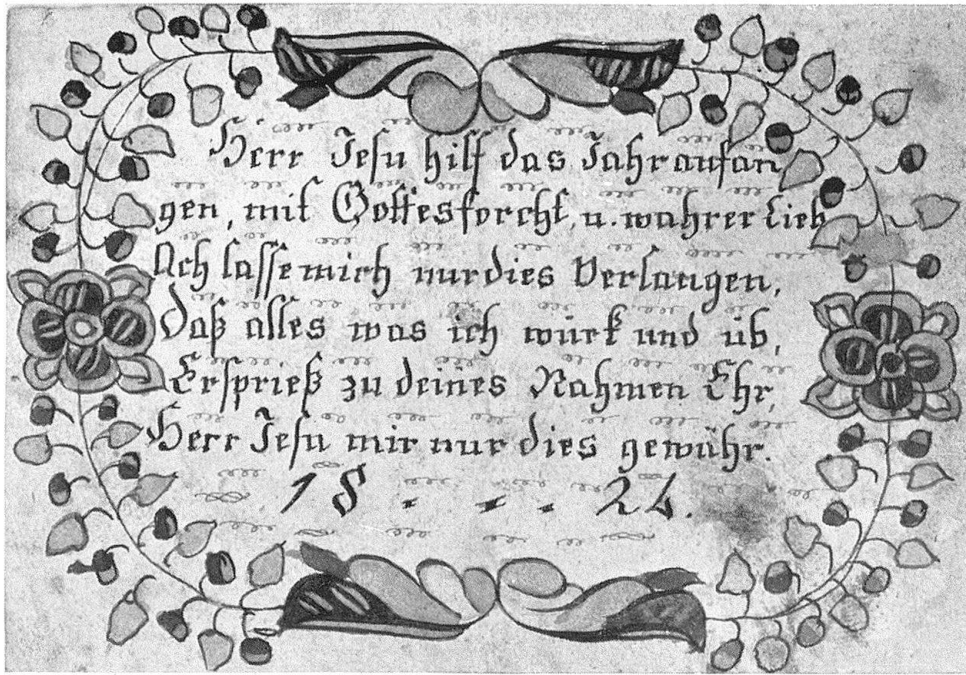 Herr Jesu hilf das Jahr anfan
gen, mit Gottesforcht, u. wahrer Lieb
Ach lasse mich nur dies Verlangen,
Daß alles was ich würk und üb,
Ersprieß zu deines Nahmen Ehr,
Herr Jesu mir nur dies gewühr.
18 - - - 24.